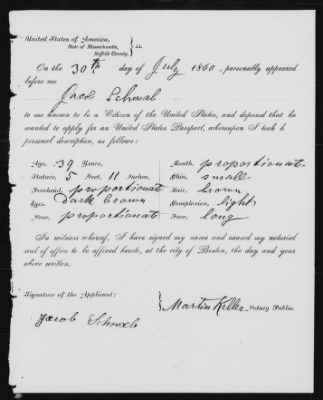 United States of America,
State of Massachusetts,
Suffolk County } ss.
On the 30th day of July 1860, personally appeared
before me
Jacob Schwab
to me known to be a Citizen of the United States, and deposed that he
wanted to apply for an United States Passport, whereupon I took his
personal description, as follows:
Age, 39 Years. Mouth, proportionate
Stature, 5 Feet, 11 Inches, Chin, small
Forehead, proportionate Hair, brown
Eyes, Dark brown Complexion, light
Nose, proportionate Face, long
In witness whereof, I have signed my name and caused my notarial
seal of office to be affixed hereto, at the city of Boston, the day and year
above written.
Signature of the Applicant:
Martin Keller Notary Public.
Jacob Schwab